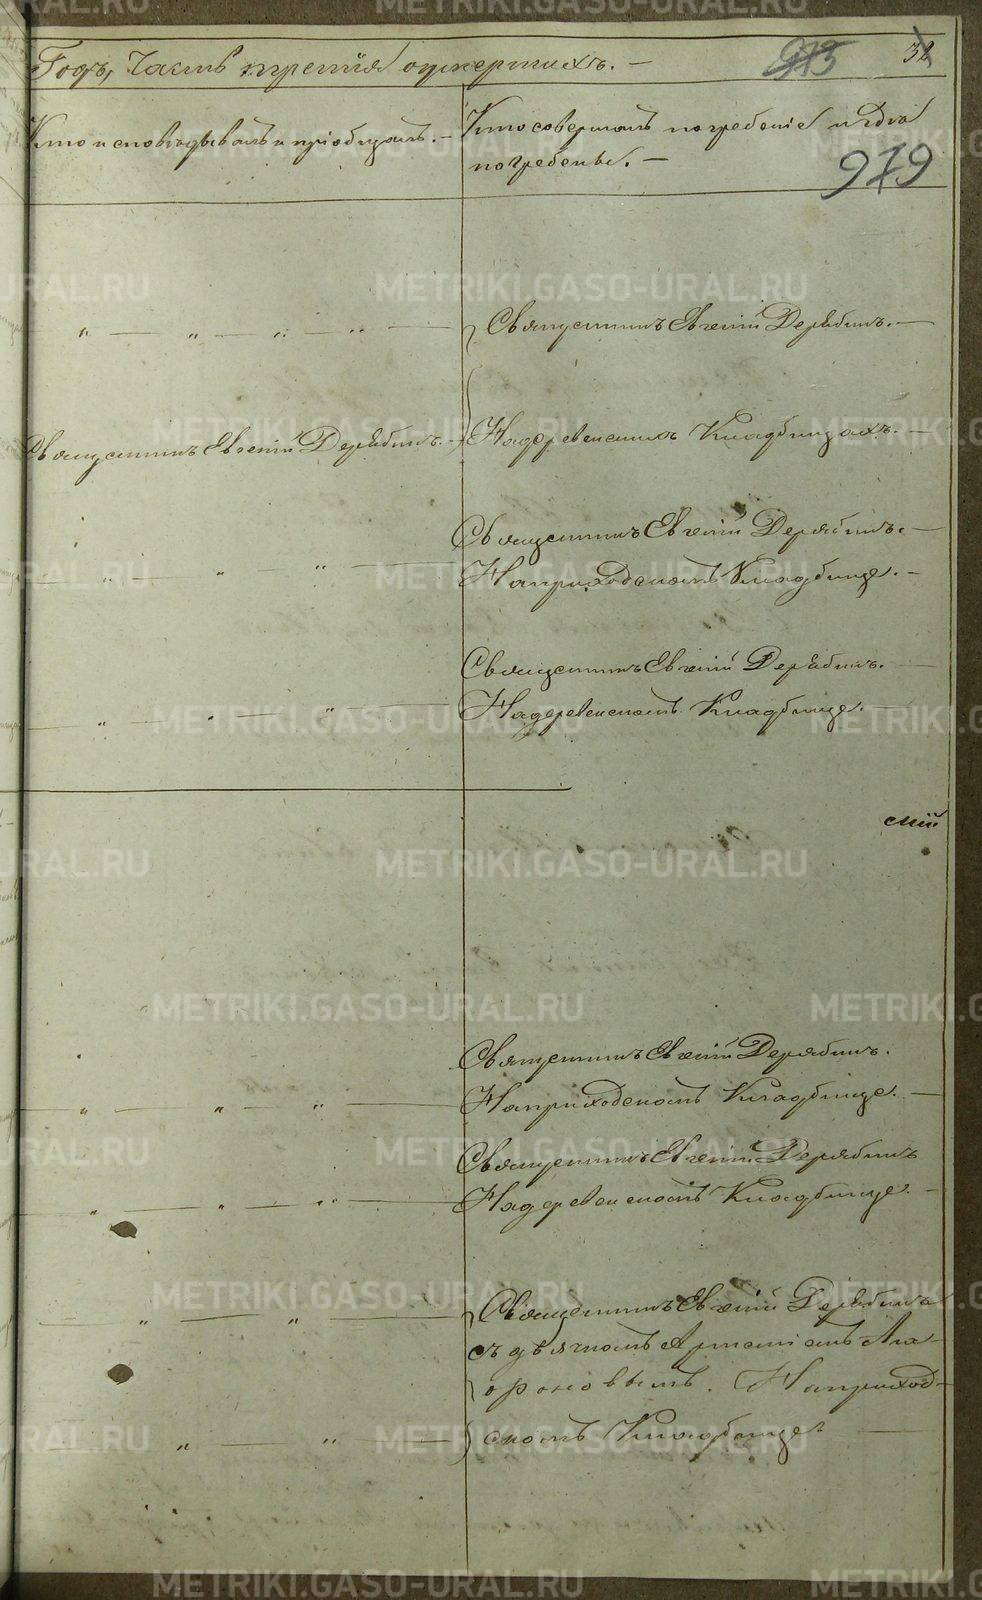 Годъ, Часть третія о умершихъ. —
973
32
Кто исповѣдывалъ и пріобщалъ. —
Кто совершалъ погребеніе и гдѣ
погребены. —
979
Священникъ Евгеній Дерябинъ. —
Священникъ Евгеній Дерябинъ. —
На деревенскихъ Кладбищахъ. —
Священникъ Евгеній Дерябинъ. —
На приходскомъ Кладбище. —
Священникъ Евгеній Дерябинъ. —
На деревенскомъ Кладбище. —
Священникъ Евгеній Дерябинъ.
На приходскомъ Кладбище. —
Священникъ Евгеній Дерябинъ
На деревенскомъ Кладбище. —
Священникъ Евгеній Дерябинъ
съ дьячкомъ
На приход-
скомъ Кладбище
METRIKI.GASO-URAL.RU